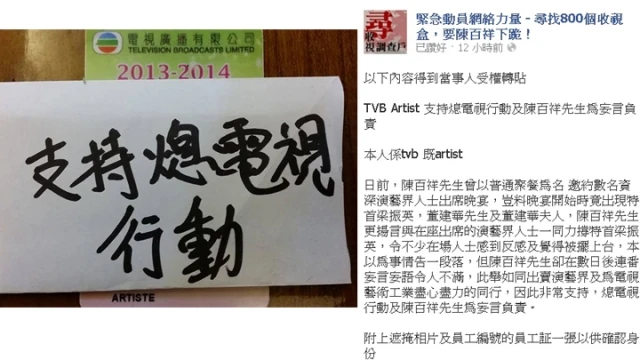 電視廣播有限公司
TELEVISION BROADCASTS LIMITED
2013-2014
支持熄電視
行動
ARTISTE
尋
收
視調查戶
緊急動員網絡力量 - 尋找800個收視
盒，要陳百祥下跪！
已讚好 · 12 小時前
以下內容得到當事人受權轉貼
TVB Artist 支持熄電視行動及陳百祥先生為妄言負
責
本人係tvb 既artist
日前，陳百祥先生曾以普通聚餐為名 邀約數名資
深演藝界人士出席晚宴，豈料晚宴開始時竟出現特
首梁振英，董建華先生及董建華夫人，陳百祥先生
更揚言與在座出席的演藝界人士一同力撐特首梁振
英，令不少在場人士感到反感及覺得被擺上台，本
以為事情告一段落，但陳百祥先生卻在數日後連番
妄言妄語令人不滿，此舉如同出賣演藝界及為電視
藝術工業盡心盡力的同行，因此非常支持，熄電視
行動及陳百祥先生為妄言負責。
附上遮掩相片及員工編號的員工証一張以供確認身
份